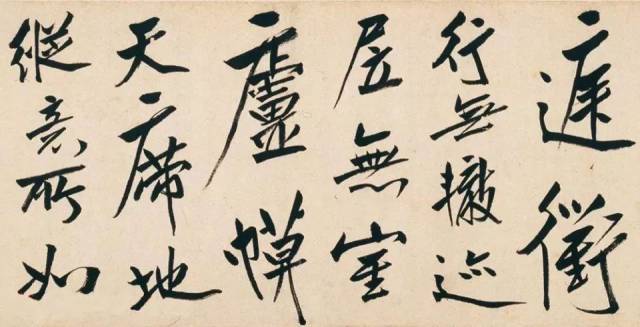 庭衢
行無轍迹
居無室
廬幙
天席地
縱意所如